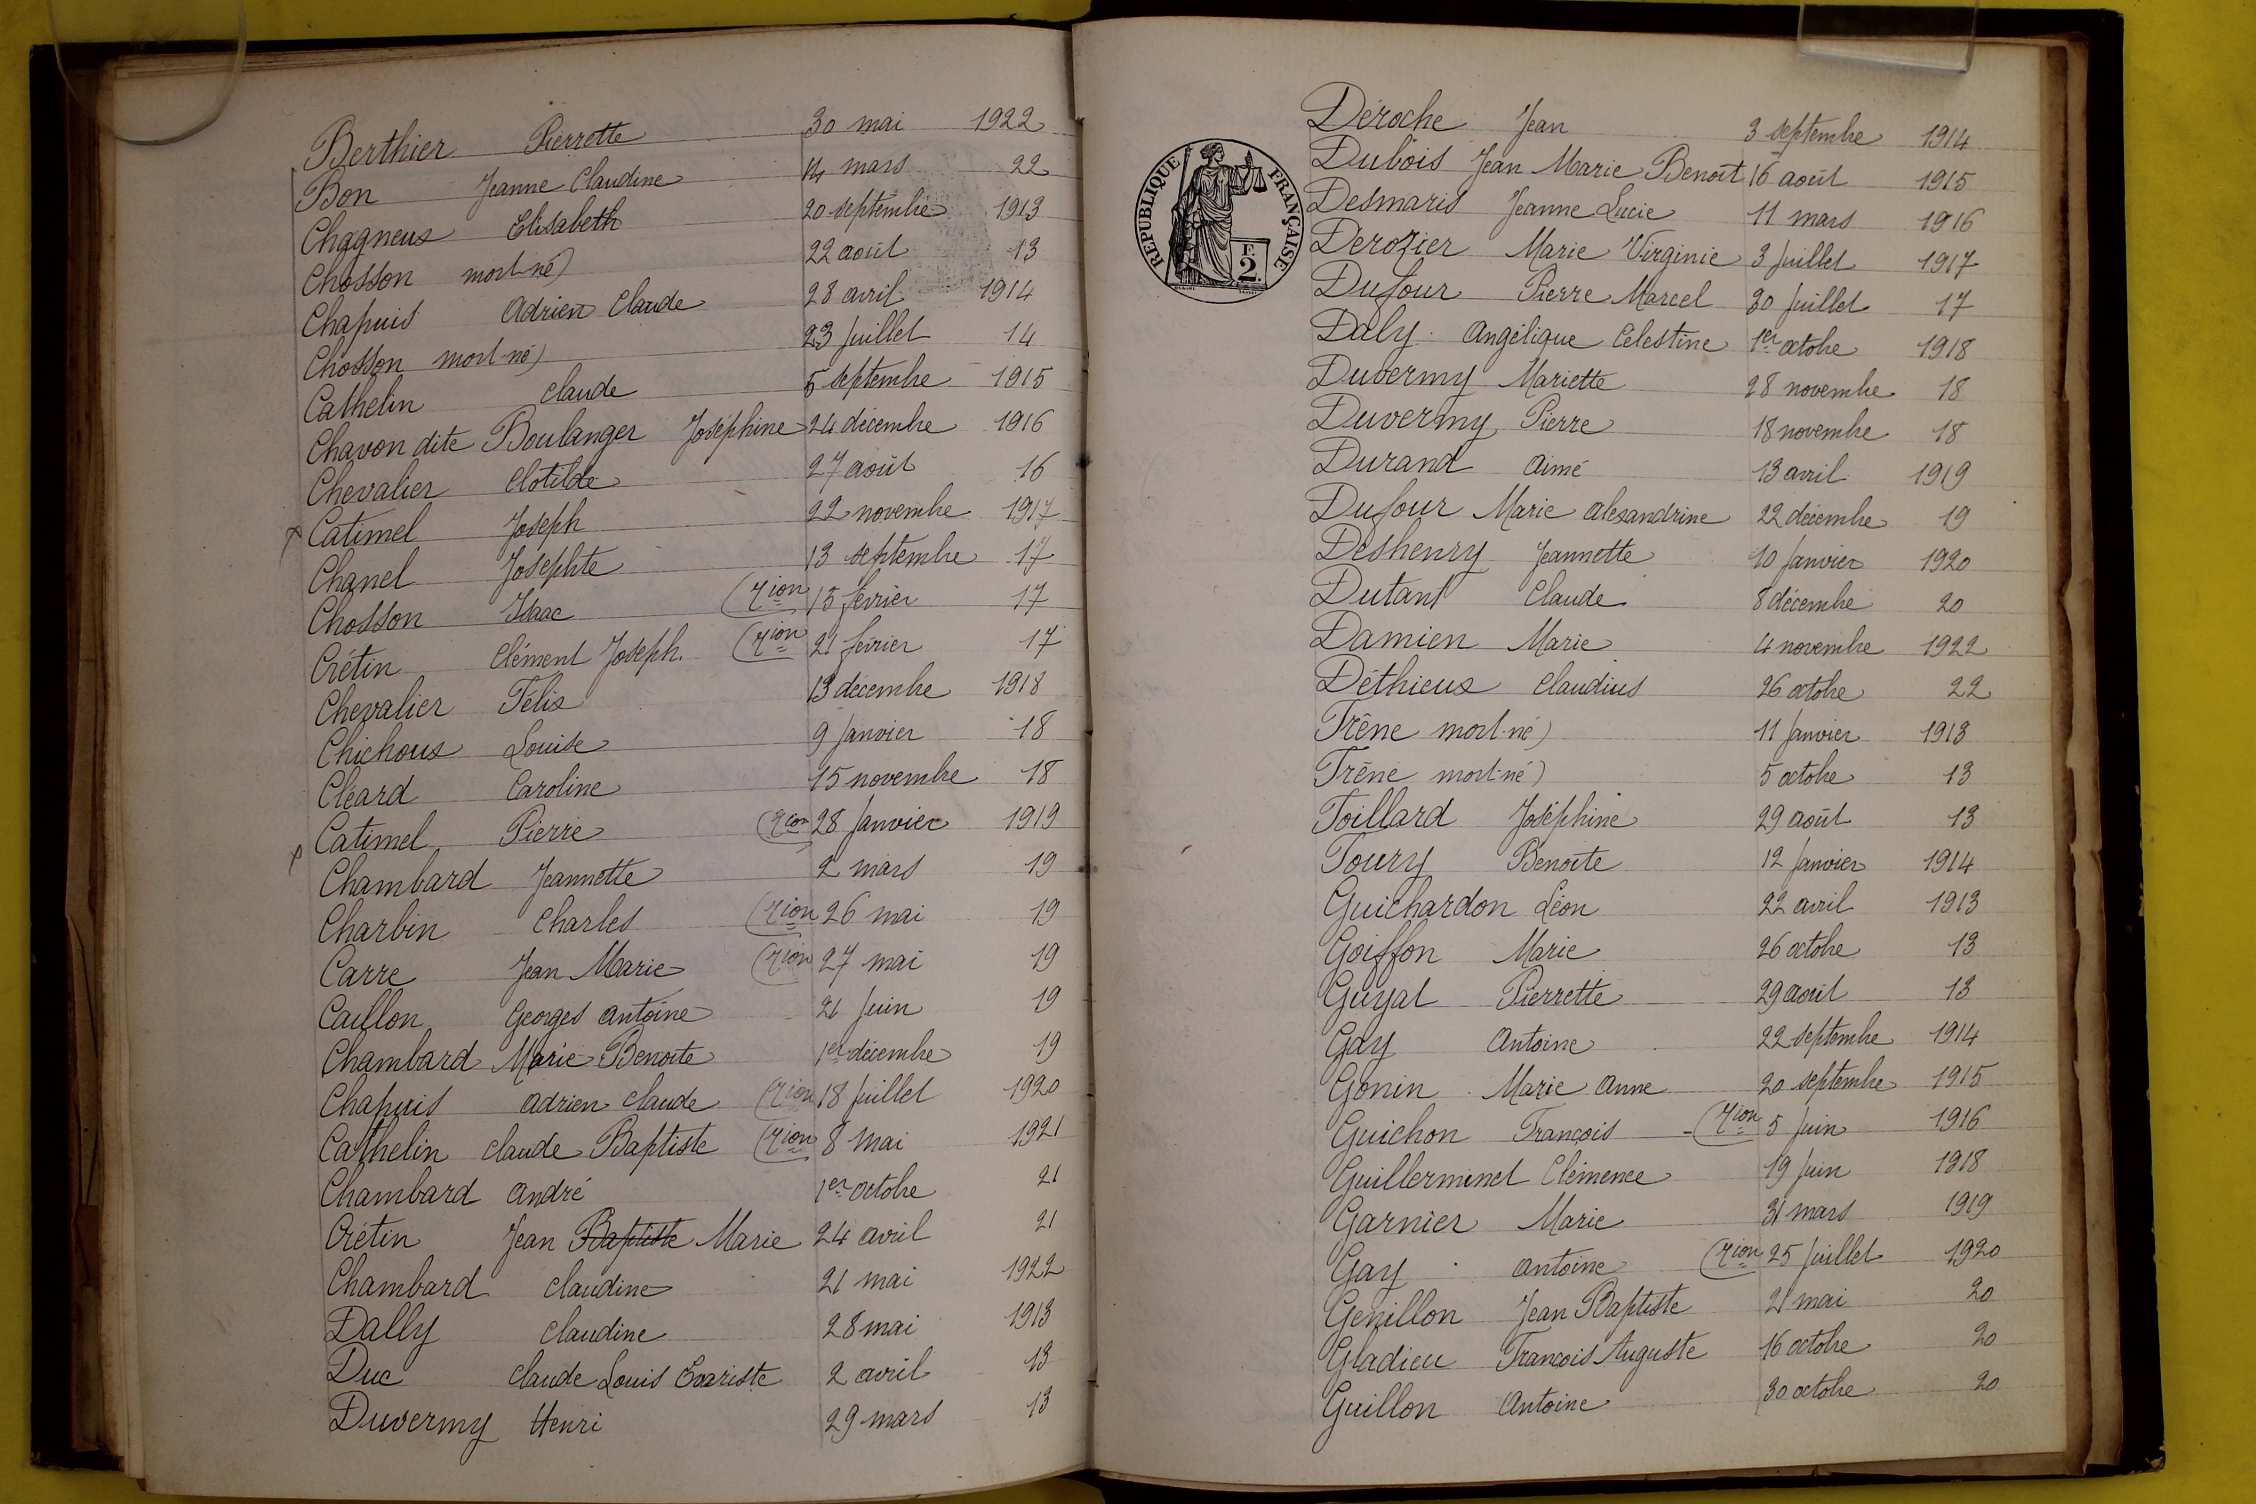 Berthier Pierrette 30 mai 1922
Bon Jeanne Claudine 14 mars 22
Chagneux Elisabeth 20 septembre 1913
Chosson mort-né) 22 août 13
Chapuis Adrien Claude 28 avril 1914
Chosson mort-né) 23 Juillet 14
Cathelin Claude 5 septembre 1915
Chavon dite Boulanger Joséphine 24 décembre 1916
Chevalier Clotilde 27 août 16
Catimel Joseph 22 novembre 1917
Chanel Josephte 13 septembre 17
Chosson Isaac (Tion 15 février 17
Crétin Clément Joseph (Tion 21 février 17
Chevalier Félix 13 décembre 1918
Chichoux Louise 9 Janvier 18
Cléard Caroline 15 novembre 18
Catimel Pierre (Tion 28 Janvier 1919
Chambard Jeannette 2 mars 19
Charbin Charles (Tion 26 mai 19
Carre Jean Marie (Tion 27 mai 19
Caillon Georges Antoine 21 Juin 19
Chambard Marie Benoîte 1er décembre 19
Chapuis Adrien Claude (Tion 18 Juillet 1920
Cathelin Claude Baptiste (Tion 8 Mai 1921
Chambard André 1er octobre 21
Crétin Jean Baptiste Marie 24 avril 21
Chambard Claudine 21 mai 1922
Dally Claudine 28 mai 1913
Duc Claude Louis Evariste 2 avril 13
Duvermy Henri 29 mars 13
RÉPUBLIQUE FRANÇAISE
F.
2
Déroche Jean 3 septembre 1914
Dubois Jean Marie Benoît 16 août 1915
Desmaris Jeanne Lucie 11 mars 1916
Derozier Marie Virginie 3 Juillet 1917
Dufour Pierre Marcel 30 Juillet 17
Daly Angélique Célestine 1er octobre 1918
Duvermy Mariette 28 novembre 18
Duvermy Pierre 18 novembre 18
Durand Aimé 13 avril 1919
Dufour Marie Alexandrine 22 décembre 19
Deshenry Jeannette 10 Janvier 1920
Dutant Claude 8 décembre 20
Damien Marie 4 novembre 1922
Déthieux Claudius 26 octobre 22
Frêne mort-né) 11 Janvier 1913
Frêne mort-né) 5 octobre 13
Foillard Joséphine 29 août 13
Foury Benoîte 12 Janvier 1914
Guichardon Léon 22 avril 1913
Goiffon Marie 26 octobre 13
Guyat Pierrette 29 août 13
Gay Antoine 22 septembre 1914
Gonin Marie Anne 20 septembre 1915
Guichon François (Tion 5 Juin 1916
Guillerminet Clémence 19 Juin 1918
Garnier Marie 31 mars 1919
Gay Antoine (Tion 25 Juillet 1920
Genillon Jean Baptiste 21 mai 20
Gladieu François Auguste 16 octobre 20
Guillon Antoine 30 octobre 20